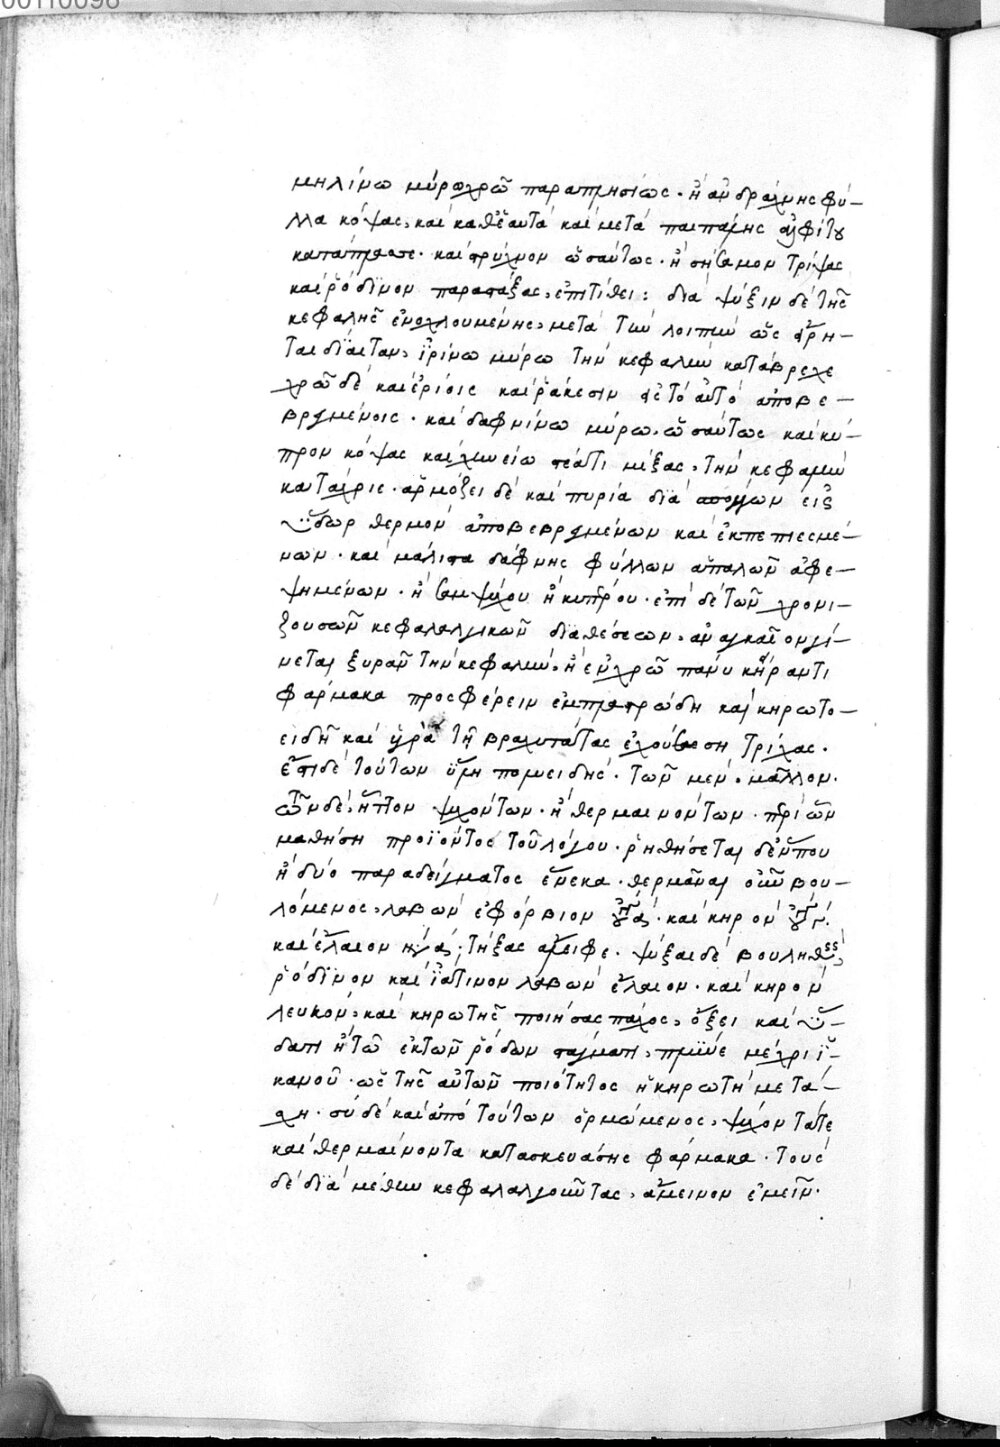 00110098
μηλίνω μύρω χρῶ παραπλησίως. ἢ ἀνδράχνης φύ-
λλα κόψας, καὶ καθ' ἑαυτὰ καὶ μετὰ παιπάλης ἀλφίτου
κατάπλασσε. καὶ στρύχνον ὡσαύτως. ἢ σήσαμον τρίψας
καὶ ῥόδινον παραστάξας, ἐπιτίθει: διὰ ψύξιν δὲ τῆς
κεφαλῆς ἐνοχλουμένης, μετὰ τὴν λοιπὴν ὡς εἴρη-
ται δίαιταν, ἰρίνω μύρω τὴν κεφαλὴν κατάβρεχε
χρῶ δὲ καὶ ἐρίοις καὶ ῥάκεσιν εἰς τὸ αὐτὸ ἀποβε-
βρεγμένοις. καὶ δαφνίνω μύρω, ὡσαύτως καὶ κύ-
προν κόψας καὶ χηνείω στέατι μίξας, τὴν κεφαλὴν
κατάχριε. ἁρμόζει δὲ καὶ πυρία διὰ σπόγγων εἰς
ὕδωρ θερμὸν ἀποβεβρεγμένων καὶ ἐκπεπιεσμέ-
νων. καὶ μάλιστα δάφνης φύλλων ἁπαλῶν ἀφε-
ψημένων. ἢ σαμψύχου ἢ κυπρου. ἐπὶ δὲ τῶν χρονι-
ζουσῶν κεφαλαλγικῶν διαθέσεων, ἀναγκαῖον γί-
νεται ξυρᾶν τὴν κεφαλὴν, ἢ ἐν χρῶ πάνυ κείραντι
φάρμακα προσφέρειν ἐμπλαστρώδη καὶ κηρωτο-
ειδῆ καὶ ὑγρὰ τῆ βραχυτάτας ἐχούση τρίχας.
ἔστι δὲ τούτων ὕλη πολυειδής. τῶν μὲν, μᾶλλον.
τῶν δὲ, ἧττον ψυχόντων. ἢ θερμαινόντων. περὶ ὧν
μαθήση προϊόντος τοῦ λόγου. ῥηθήσεται δέ που
ἢ δύο παραδείγματος ἕνεκα. θερμᾶναι οὖν βου-
λόμενος, λαβὼν εὐφόρβιον καὶ κηρὸν
καὶ ἔλαιον τήξας ἄλειφε. ψύξαι δὲ βουληθεὶς,
ῥόδινον καὶ ἰάτινον λαβὼν ἔλαιον. καὶ κηρὸν
λευκόν, καὶ κηρωτῆς ποιήσας πάχος, ὄξει καὶ ὕ-
δατι ἢ τῶ ἐκ τῶν ῥόδων σταλάγματι, πλῦνε μέχρι ἱ-
κανοῦ. ὡς τῆς αὐτῶν ποιότητος ἡ κηρωτὴ μετά-
σχη. σὺ δὲ καὶ ἀπὸ τούτων ὁρμώμενος, ψύχοντά τε
καὶ θερμαίνοντα κατασκευάσης φάρμακα. τοὺς
δὲ διὰ μέθην κεφαλαλγοῦντας, ἄμεινον ἐμεῖν.